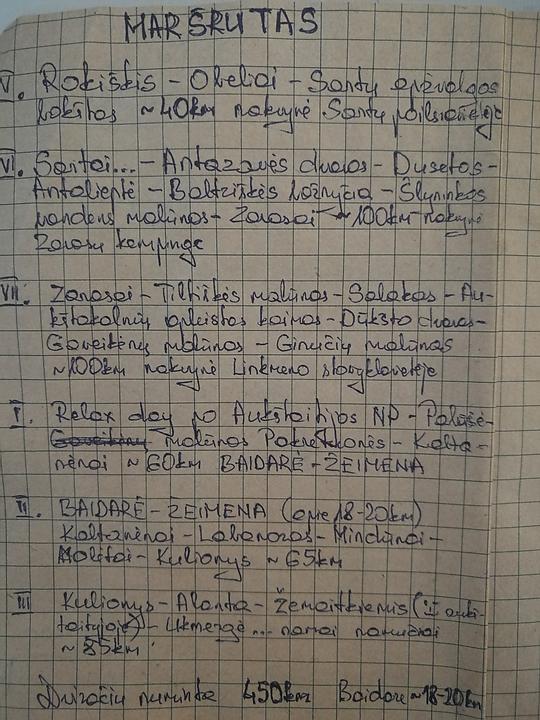 MARŠRUTAS
V. Rokiškis – Obeliai – Sartų apžvalgos
bokštas ~40km nakvynė Sartų poilsiavietėje
VI. Sartai... – Antazavės dvaras – Dusetos –
Antalieptė – Baltriškės bažnyčia – Šlyninkos
vandens malūnas – Zarasai ~100km nakvynė
Zarasų kempinge
VII. Zarasai – Tiltiškės malūnas – Salakas – Au-
kštakalnių apleistas kaimas – Dūkšto dvaras –
Gaveikėnų malūnas – Ginučių malūnas
~100km nakvynė Linkmeno stovyklavietėje
I. Relax day po Aukštaitijos NP – Palūšė –
malūnas Pakretuonės – Kalta-
nėnai ~60km BAIDARĖ – ŽEIMENA
II. BAIDARĖ – ŽEIMENA (apie 18-20km)
Kaltanėnai – Labanoras – Mindūnai –
Molėtai – Kulionys ~65km
III Kulionys – Alanta – Žemaitkiemis
– Ukmergė... namai namučiai
~85km
Dviračiu numinta 450km Baidare ~18-20km